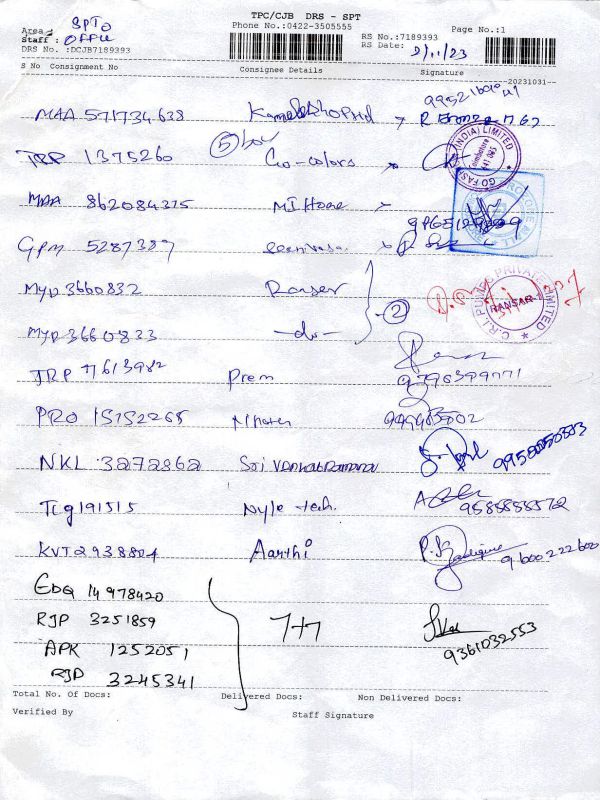 TPC/CJB DRS - SPT
Area : SPTO
Phone No.:0422-3505555
Page No.:1
Staff : OFFU
RS No.:7189393
DRS No. :DCJB7189393
RS Date: 2/11/23
S No Consignment No Consignee Details Signature
20231031
MAA 571734638
TRP 1375260 5 box Go-colors
(INDIA) LIMITED
GO FAS
MAA 862084315 MI Home
GPM 5287387
MYD 3660832 Ranser 2
C.R.I. PUMPS PRIVATE LIMITED
RANSAR-1
MYD 3660833 -do-
TRP 77613982 Prem 9796399771
PRO 15152265
NKL 3272862 Sri Venkataramana
TCg 191515 Nyle tech. 9585858572
KVT 2938804 Aarthi 9600222602
EDQ 14978420
RJP 3251859 7+7
APK 1252051 9361032553
RJP 3245341
Total No. Of Docs: Delivered Docs: Non Delivered Docs:
Verified By Staff Signature